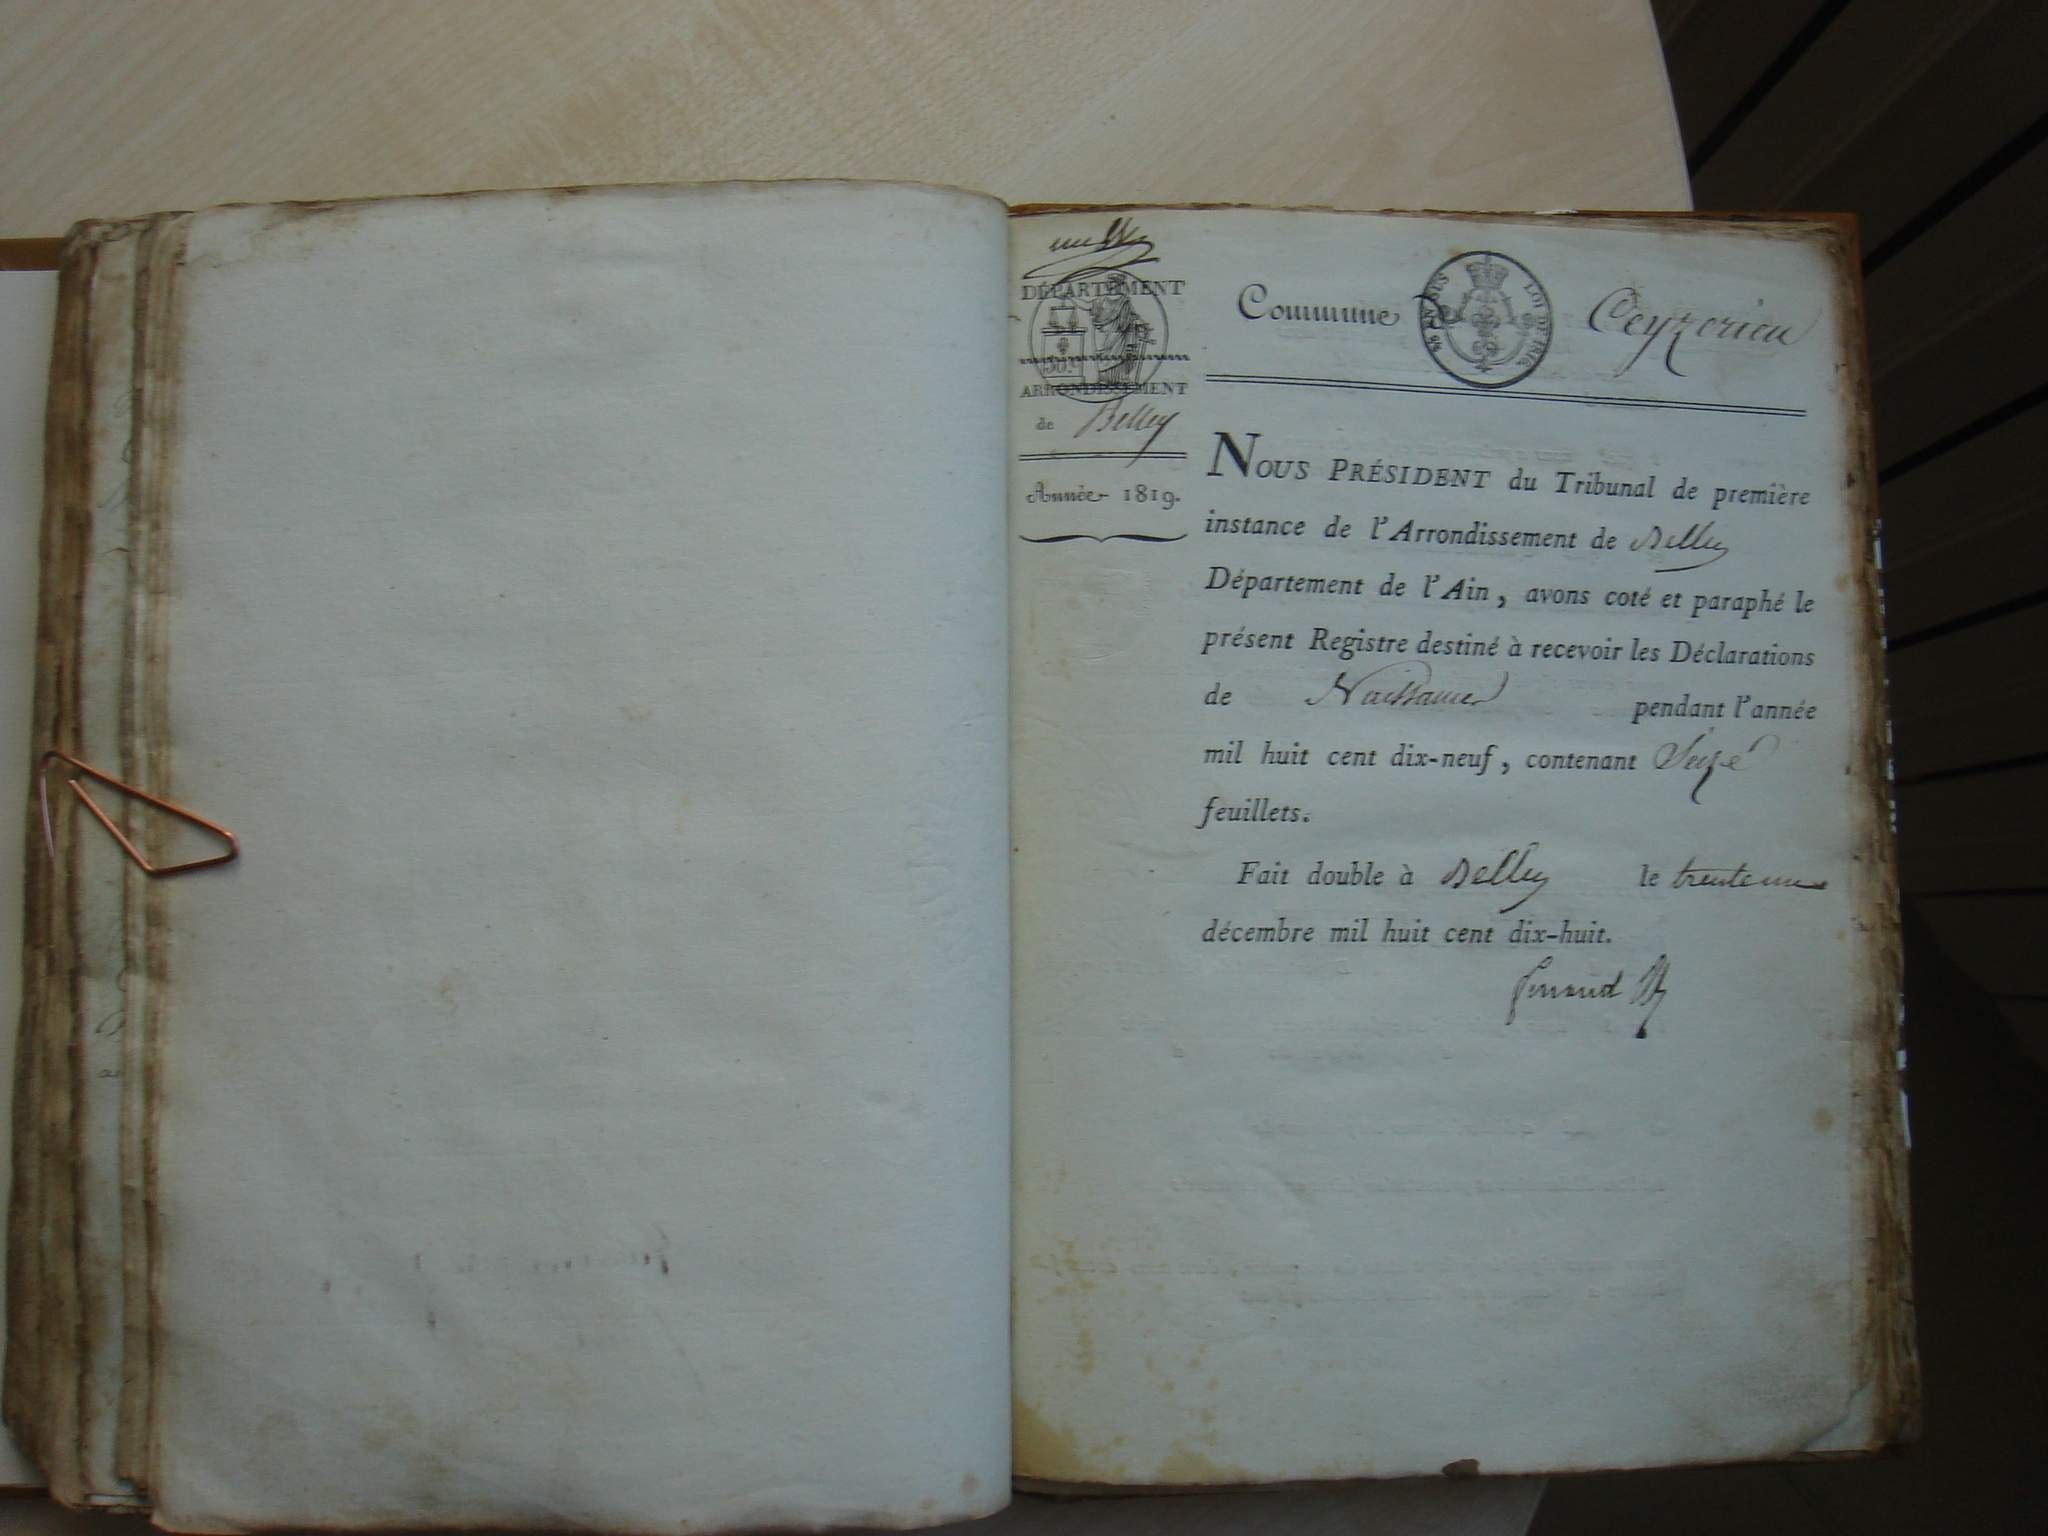 DÉPARTEMENT
30.c
ARRONDISSEMENT
de Belley
Année 1819.
Commune de Ceyzerieu
LOI DE
NOUS PRÉSIDENT du Tribunal de première
instance de l'Arrondissement de Belley
Département de l'Ain, avons coté et paraphé le
présent Registre destiné à recevoir les Déclarations
de Naissances pendant l'année
mil huit cent dix-neuf, contenant Seize
feuillets.
Fait double à Belley le trente un
décembre mil huit cent dix-huit.